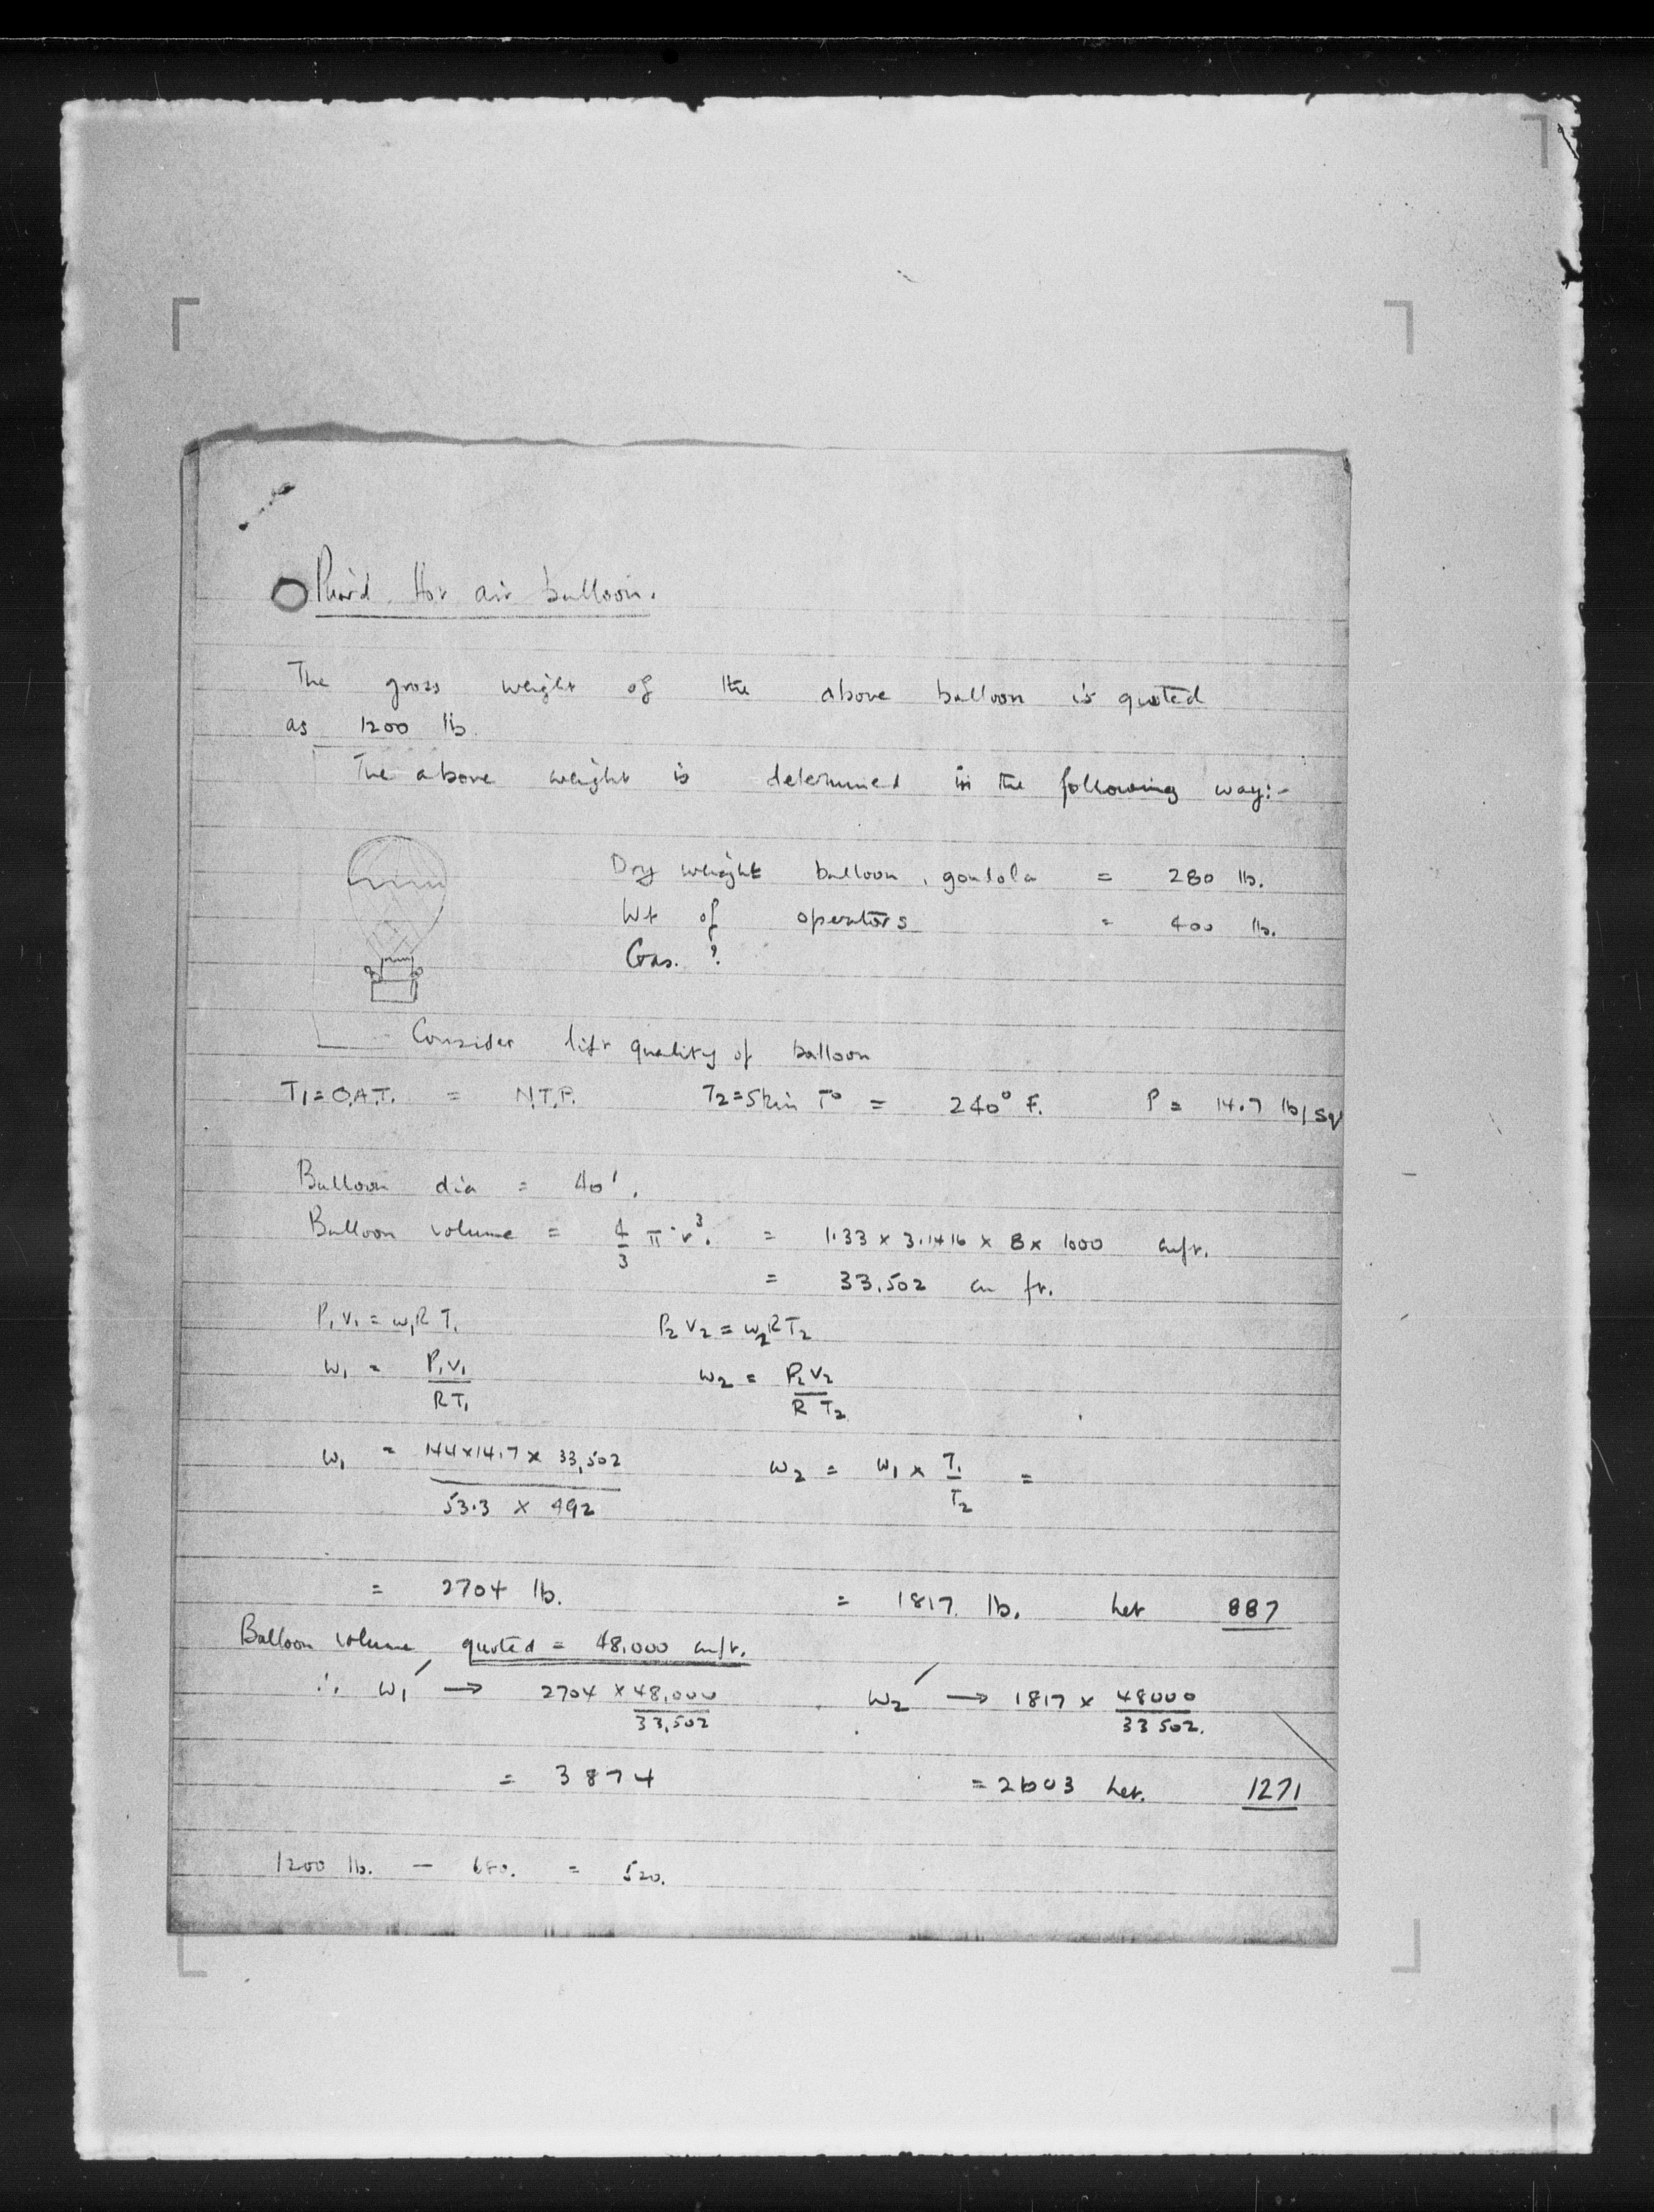 Hot air balloon.
The gross weight of the above balloon is quoted
as 1200 lb.
The above weight is determined in the following way:-
Dry weight balloon, gondola = 280 lb.
Wt of operators = 400 lb.
Gas. ?
Consider lift quality of balloon
T₁ = O.A.T. = N.T.P. T₂ = Skin T° = 240° F. P = 14.7 lb/sq
Balloon dia = 40'.
Balloon volume = 4/3 π r³. = 1.33 × 3.1416 × 8 × 1000 cu ft.
= 33,502 cu ft.
P₁V₁ = w₁RT₁ P₂V₂ = w₂RT₂
w₁ = P₁V₁/RT₁ w₂ = P₂V₂/RT₂
w₁ = 144×14.7×33,502/53.3 × 492 w₂ = w₁ × T₁/T₂ =
= 2704 lb. = 1817 lb. Let 887
Balloon volume quoted = 48,000 cu ft.
∴ w₁' → 2704 × 48,000/33,502 w₂' → 1817 × 48000/33502.
= 3874 = 2603 Let. 1271
1200 lb. - 680. = 520.